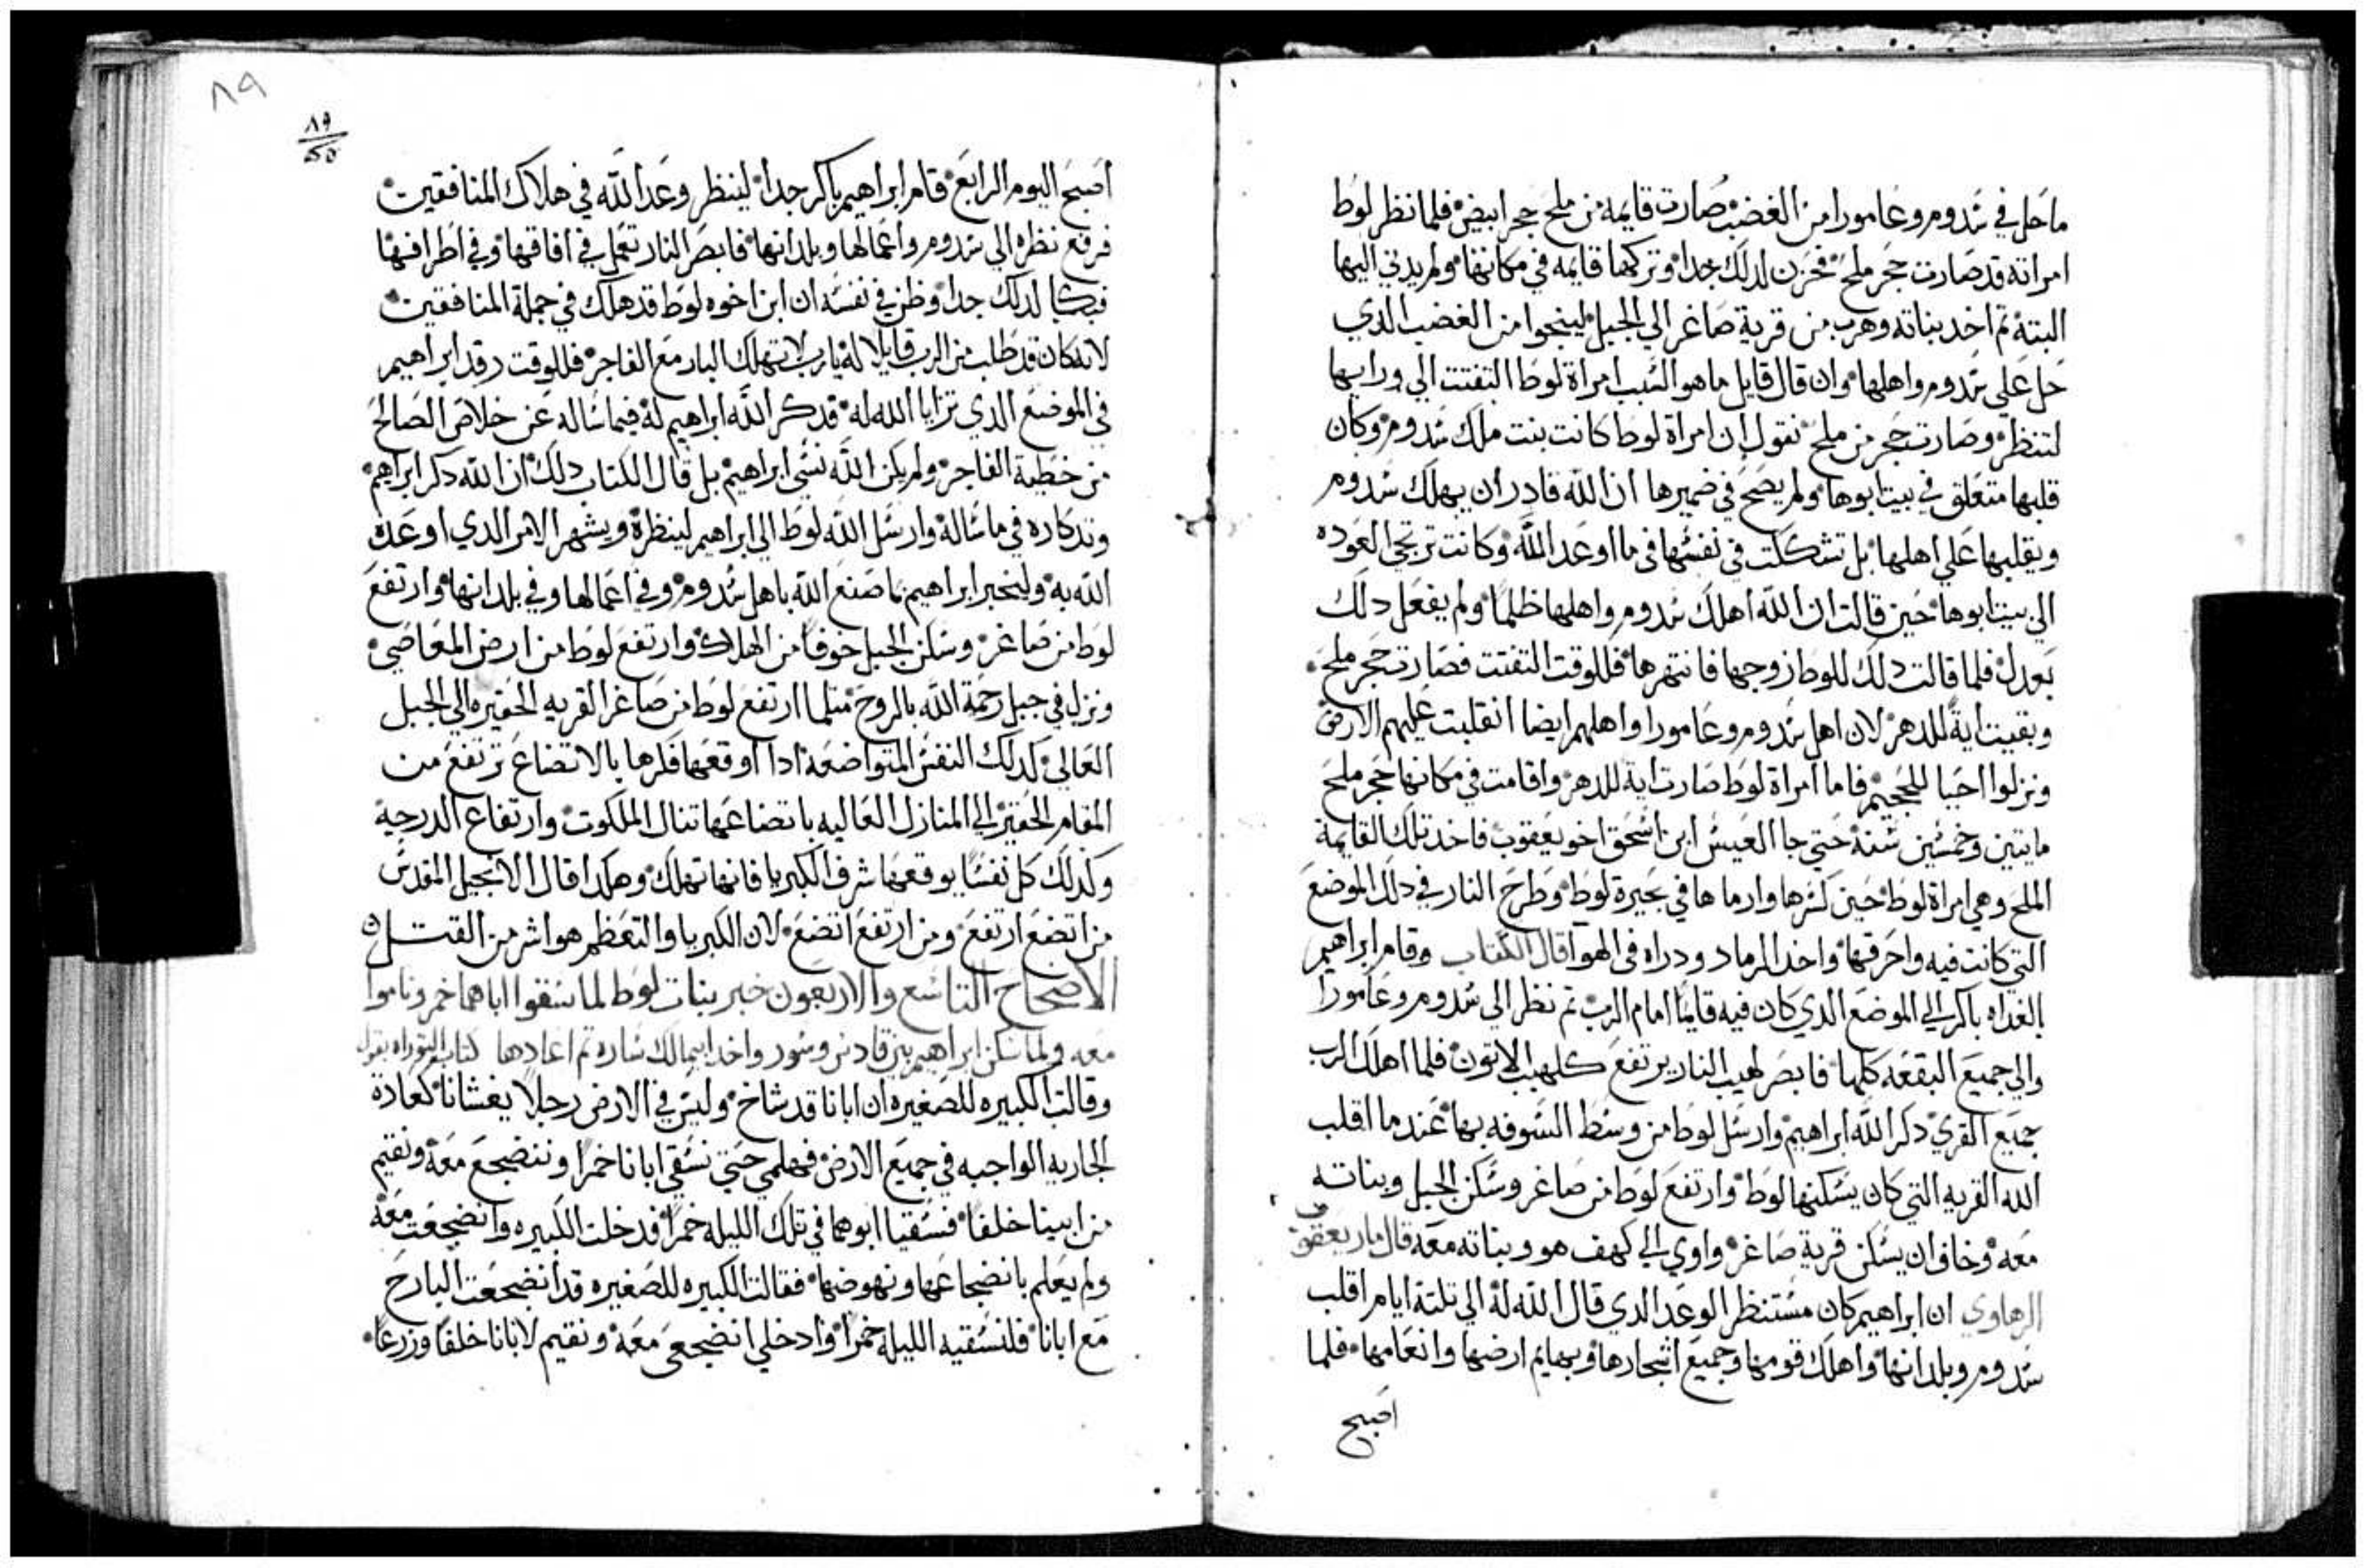 ما حل في سدوم وعامورا من الغضب صارت قايمه من ملح حجر ابيض فلما نظر لوط
امراته قد صارت حجر ملح فحزن لدلك جدا وتركها قايمه في مكانها ولم يدني اليها
البتة تم اخد بناته وهرب من قرية صاغر الي الجبل لينجوا من الغضب الدي
حل علي سدوم واهلها وان قال قايل ما هو السبب امراة لوط التفتت الي ورايها
لتنظر وصارت حجر من ملح نقول ان امراة لوط كانت بنت ملك سدوم وكان
قلبها متعلق في بيت ابوها ولم يصح في ضميرها ان الله قادر ان يهلك سدوم
ويقلبها علي اهلها بل تشككت في نفسها في ما اوعد الله وكانت ترتجي العوده
الي بيت ابوها حين قالت ان الله اهلك سدوم واهلها ظلما ولم يفعل دلك
بعدل فلما قالت دلك للوط زوجها فانتهرها فللوقت التفتت فصارت حجر ملح
وبقيت اية للدهر لان اهل سدوم وعامورا واهلهم ايضا انقلبت عليهم الارض
ونزلوا احيا للجحيم فاما امراة لوط صارت اية للدهر واقامت في مكانها حجر ملح
مايتين وخمسين سنة حتي جا العيس ابن اسحق اخو يعقوب فاخد تلك القايمة
الملح وهي امراة لوط حين كسرها وارماها في بحيرة لوط وطرح النار في دلك الموضع
التي كانت فيه واحرقها واخد الرماد ودراه في الهوا قال الكتاب وقام ابراهيم
بالغداه باكر الي الموضع الدي كان فيه قايما امام الرب تم نظر الي سدوم وعامورا
والي جميع البقعه كلها فابصر لهيب النار يرتفع كلهيب الاتون فلما اهلك الرب
جميع القري دكر الله ابراهيم وارسل لوط من وسط السوفه بها عندما اقلب
الله القريه التي كان يسكنها لوط وارتفع لوط من صاغر وسكن الجبل وبناته
معه وخاف ان يسكن قرية صاغر واوي الي كهف هو وبناته معه قال مار يعقوب
الرهاوي ان ابراهيم كان مستنظر الوعد الدي قال الله له الي تلتة ايام اقلب
سدوم وبلدانها واهلك قومها وجميع اشجارها وبهايم ارضها وانعامها فلما
اصبح
٨٩
٨٩
اصبح اليوم الرابع قام ابراهيم باكر جدا لينظر وعد الله في هلاك المنافقين
فرفع نظره الي سدوم واعمالها وبلدانها فابصر النار تعمل في افاقها وفي اطرافها
فبكا لدلك جدا وظن في نفسه ان ابن اخوه لوط قد هلك في جملة المنافقين
لانه كان قد طلب من الرب قايلا له يارب لا تهلك البار مع الفاجر فللوقت رقد ابراهيم
في الموضع الدي ترايا الله له قد كر الله ابراهيم له فيما ساله عن خلاص الصالح
من خطية الفاجر ولم يكن الله نسي ابراهيم بل قال الكتاب دلك ان الله دكر ابراهيم
وتدكاره في ما ساله وارسل الله لوط الي ابراهيم لينظره ويشهر الامر الدي اوعده
الله به وليخبر ابراهيم بما صنع الله باهل سدوم وفي اعمالها وفي بلدانها وارتفع
لوط من صاغر وسكن الجبل خوفا من الهلاك وارتفع لوط من ارض المعاصي
ونزل في جبل رحمة الله بالروح متلما ارتفع لوط من صاغر القريه الحقيره الي الجبل
العالي كدلك النفس المتواضعة ادا اوقعها فكرها بالاتضاع ترتفع من
المقام الحقير الي المنازل العاليه باتضاعها تنال الملكوت وارتفاع الدرجة
وكدلك كل نفسا يوقعها شرف الكبريا فانها تهلك وهكدا قال الانجيل المقدس
من اتضع ارتفع ومن ارتفع اتضع لان الكبريا والتعظم هو اشر من القتل
الاصحاح التاسع والاربعون خبر بنات لوط لما سقوا اباهما خمر وناموا
معه ولما سكن ابراهيم بين قادس وسور واخد ابيمالك ساره تم اعادها كتاب التوراه يقول
وقالت الكبيره للصغيره ان ابانا قد شاخ وليس في الارض رجلا يغشانا كعادة
الجاريه الواجبه في جميع الارض فهلمي حتي نسقي ابانا خمرا وننضجع معه ونقيم
من ابينا خلفا فسقيا ابوهما في تلك الليله خمرا فدخلت الكبيره وانضجعت معه
ولم يعلم بانضجاعها ونهوضها فقالت الكبيره للصغيره قد انضجعت البارح
مع ابانا فلنسقيه الليلة خمرا وادخلي انضجعي معه ونقيم لابانا خلفا وزرعا